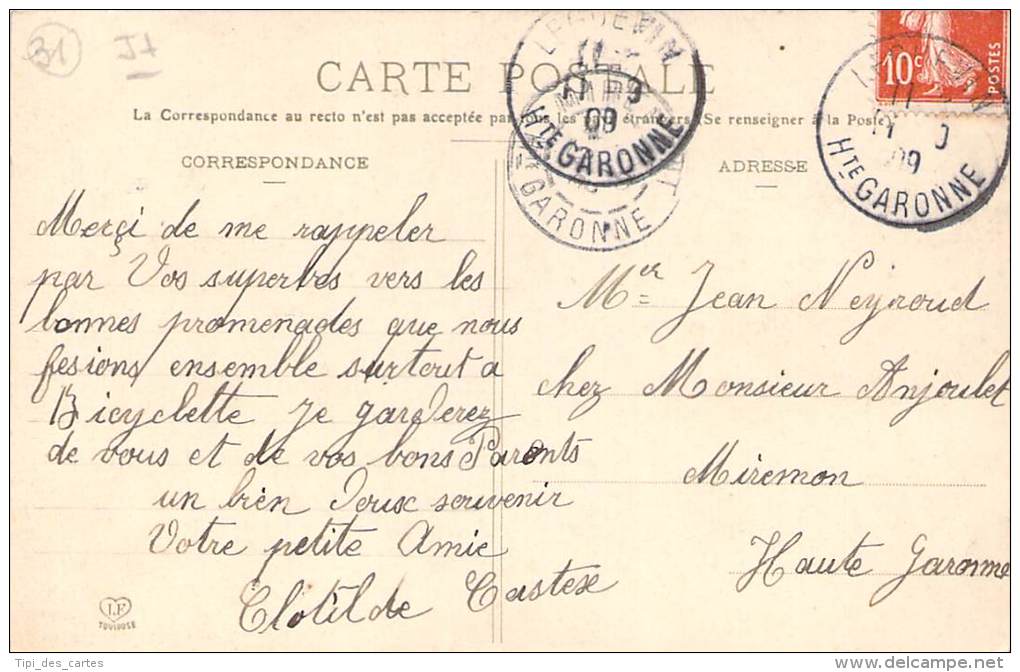 31
CARTE POSTALE
La Correspondance au recto n'est pas acceptée par tous les pays étrangers (Se renseigner à la Poste)
CORRESPONDANCE
Merçi de me rappeler
par Vos superbes vers les
bonnes promenades que nous
fesions ensemble surtout a
Bicyclette Je garderez
de vous et de vos bons Parents
un bien Doux souvenir
Votre petite Amie
Clotilde Castex
LF
TOULOUSE
ADRESSE
Mer Jean Neyroud
chez Monsieur Anjoulet
Miremon
Haute Garonne
10c
POSTES
09
Hte GARONNE
GARONNE
09
Hte GARONNE
Tipi_des_cartes
www.delcampe.net